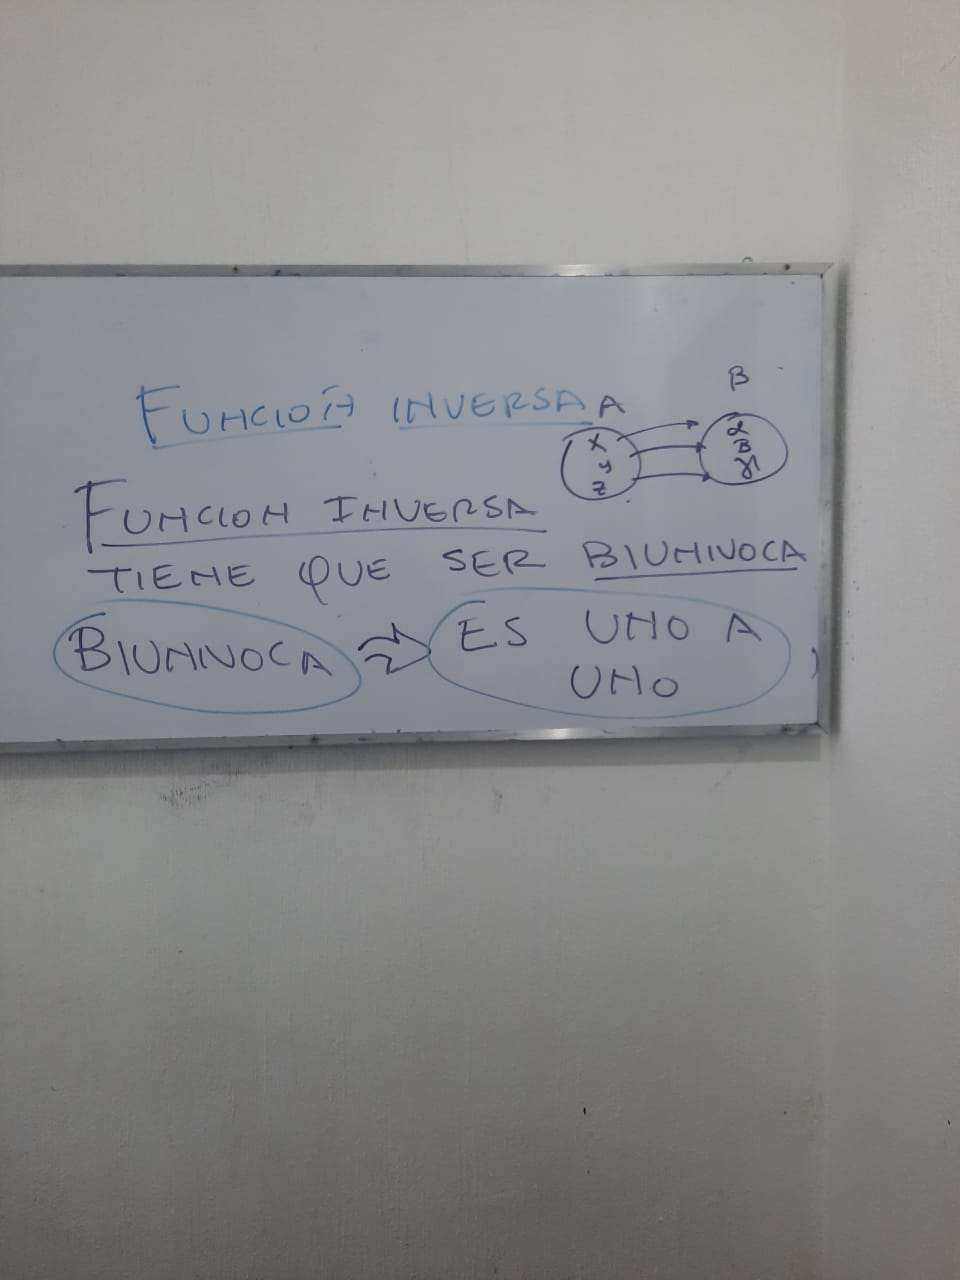 FUNCIÓN INVERSA
A
B
x
y
z
α
β
γ
FUNCION INVERSA
TIENE QUE SER BIUNIVOCA
BIUNIVOCA ⇒ ES UNO A
UNO